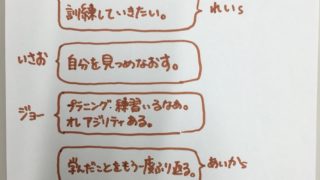 訓練していきたい。
れいら
いさお
自分を見つめなおす。
ジョー
プラニング:練習いるなぁ。
オレ アジリティある。
学んだことをもう一度ふり返る。
あいから